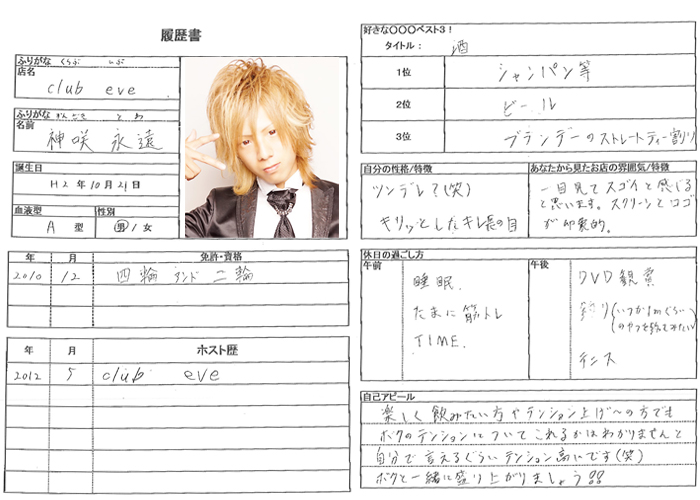 履歴書
ふりがな くらぶ いぶ
店名
club eve
ふりがな かんざき とわ
名前
神咲 永遠
誕生日
H2年10月21日
血液型 性別
A 型 男/女
年 月 免許・資格
2010 12 四輪 アンド 二輪
年 月 ホスト歴
2012 5 club eve
好きな〇〇〇ベスト3!
タイトル: 酒
1位 シャンパン等
2位 ビール
3位 ブランデーのストレートティー割り
自分の性格/特徴
ツンデレ?(笑)
キリッとしたキレ長の目
あなたから見たお店の雰囲気/特徴
一目見てスゴイと感じると思います。スクリーンとロゴ
が印象的。
休日の過ごし方
午前
睡眠.
たまに筋トレ
TIME.
午後
DVD観賞
釣り(いつか1mぐらい
のヤツを釣ってみたい)
テニス
自己アピール
楽しく飲みたい方やテンション上げ〜の方でも
ボクのテンションについてこれるかはわかりませんと
自分で言えるぐらいテンション高いです(笑)
ボクと一緒に盛り上がりましょう!!